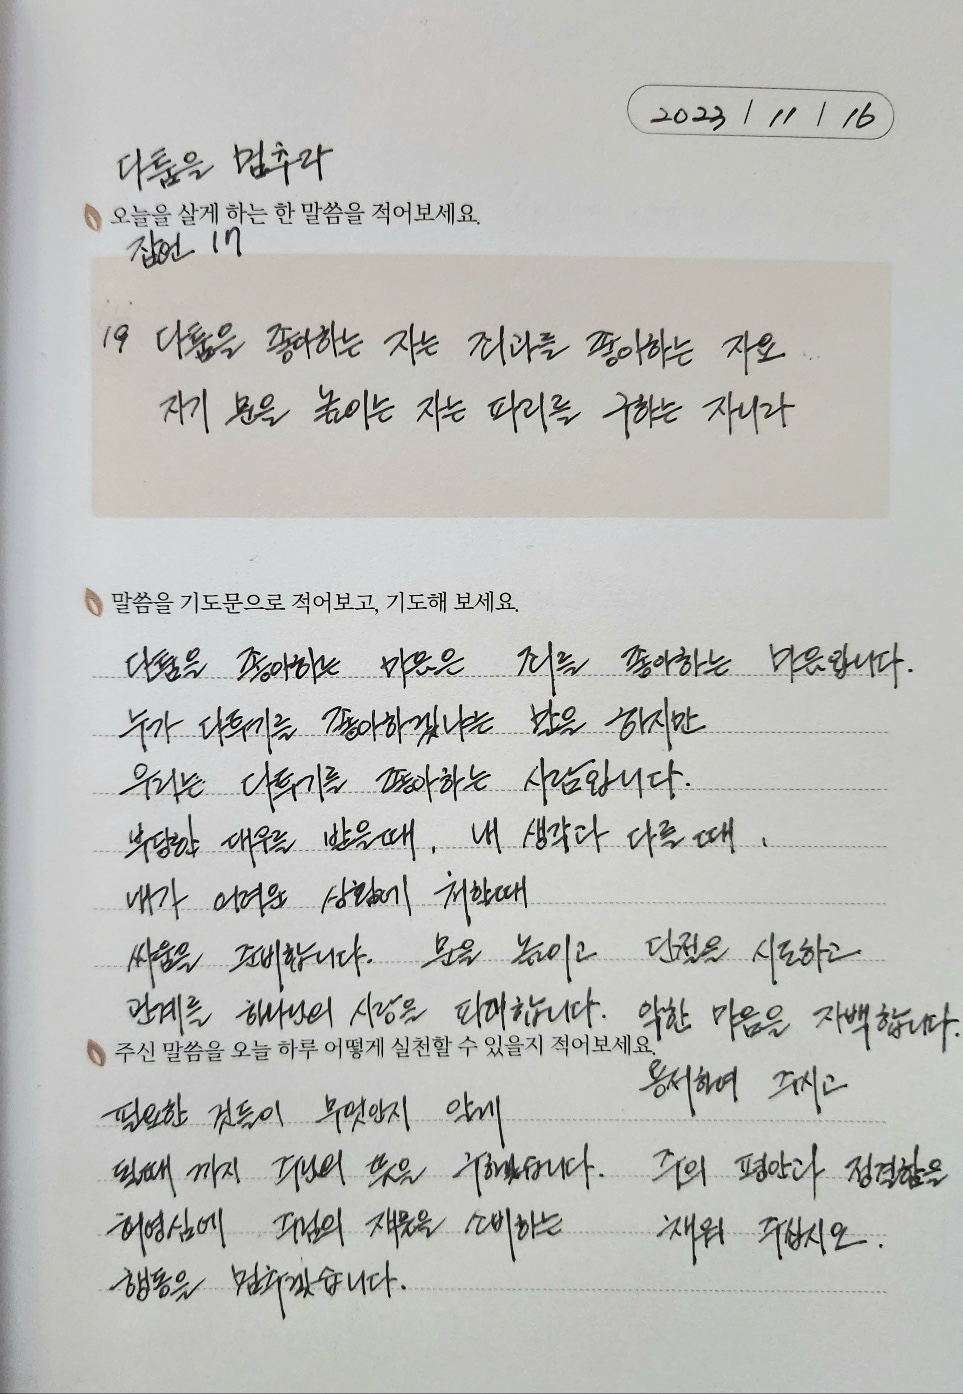 2023 / 11 / 16
다툼을 멈추라
오늘을 살게 하는 한 말씀을 적어보세요.
잠언 17
19 다툼을 좋아하는 자는 죄과를 좋아하는 자요
자기 문을 높이는 자는 파괴를 구하는 자니라
말씀을 기도문으로 적어보고, 기도해 보세요.
다툼을 좋아하는 마음은 죄를 좋아하는 마음입니다.
누가 다투기를 좋아하겠냐는 말을 하지만
우리는 다투기를 좋아하는 사람입니다.
부당한 대우를 받을때, 내 생각과 다를 때,
내가 어려운 상황에 처할때
싸움을 준비합니다. 문을 높이고 단절을 시도하고
관계를 하나님의 사랑을 파괴합니다. 악한 마음을 자백합니다.
주신 말씀을 오늘 하루 어떻게 실천할 수 있을지 적어보세요.
용서하여 주시고
필요한 것들이 무엇인지 알게
될때 까지 주님의 뜻을 구하겠습니다. 주의 평안과 정결함을
허영심에 주님의 재물을 소비하는 채워 주십시오.
행동을 멈추겠습니다.